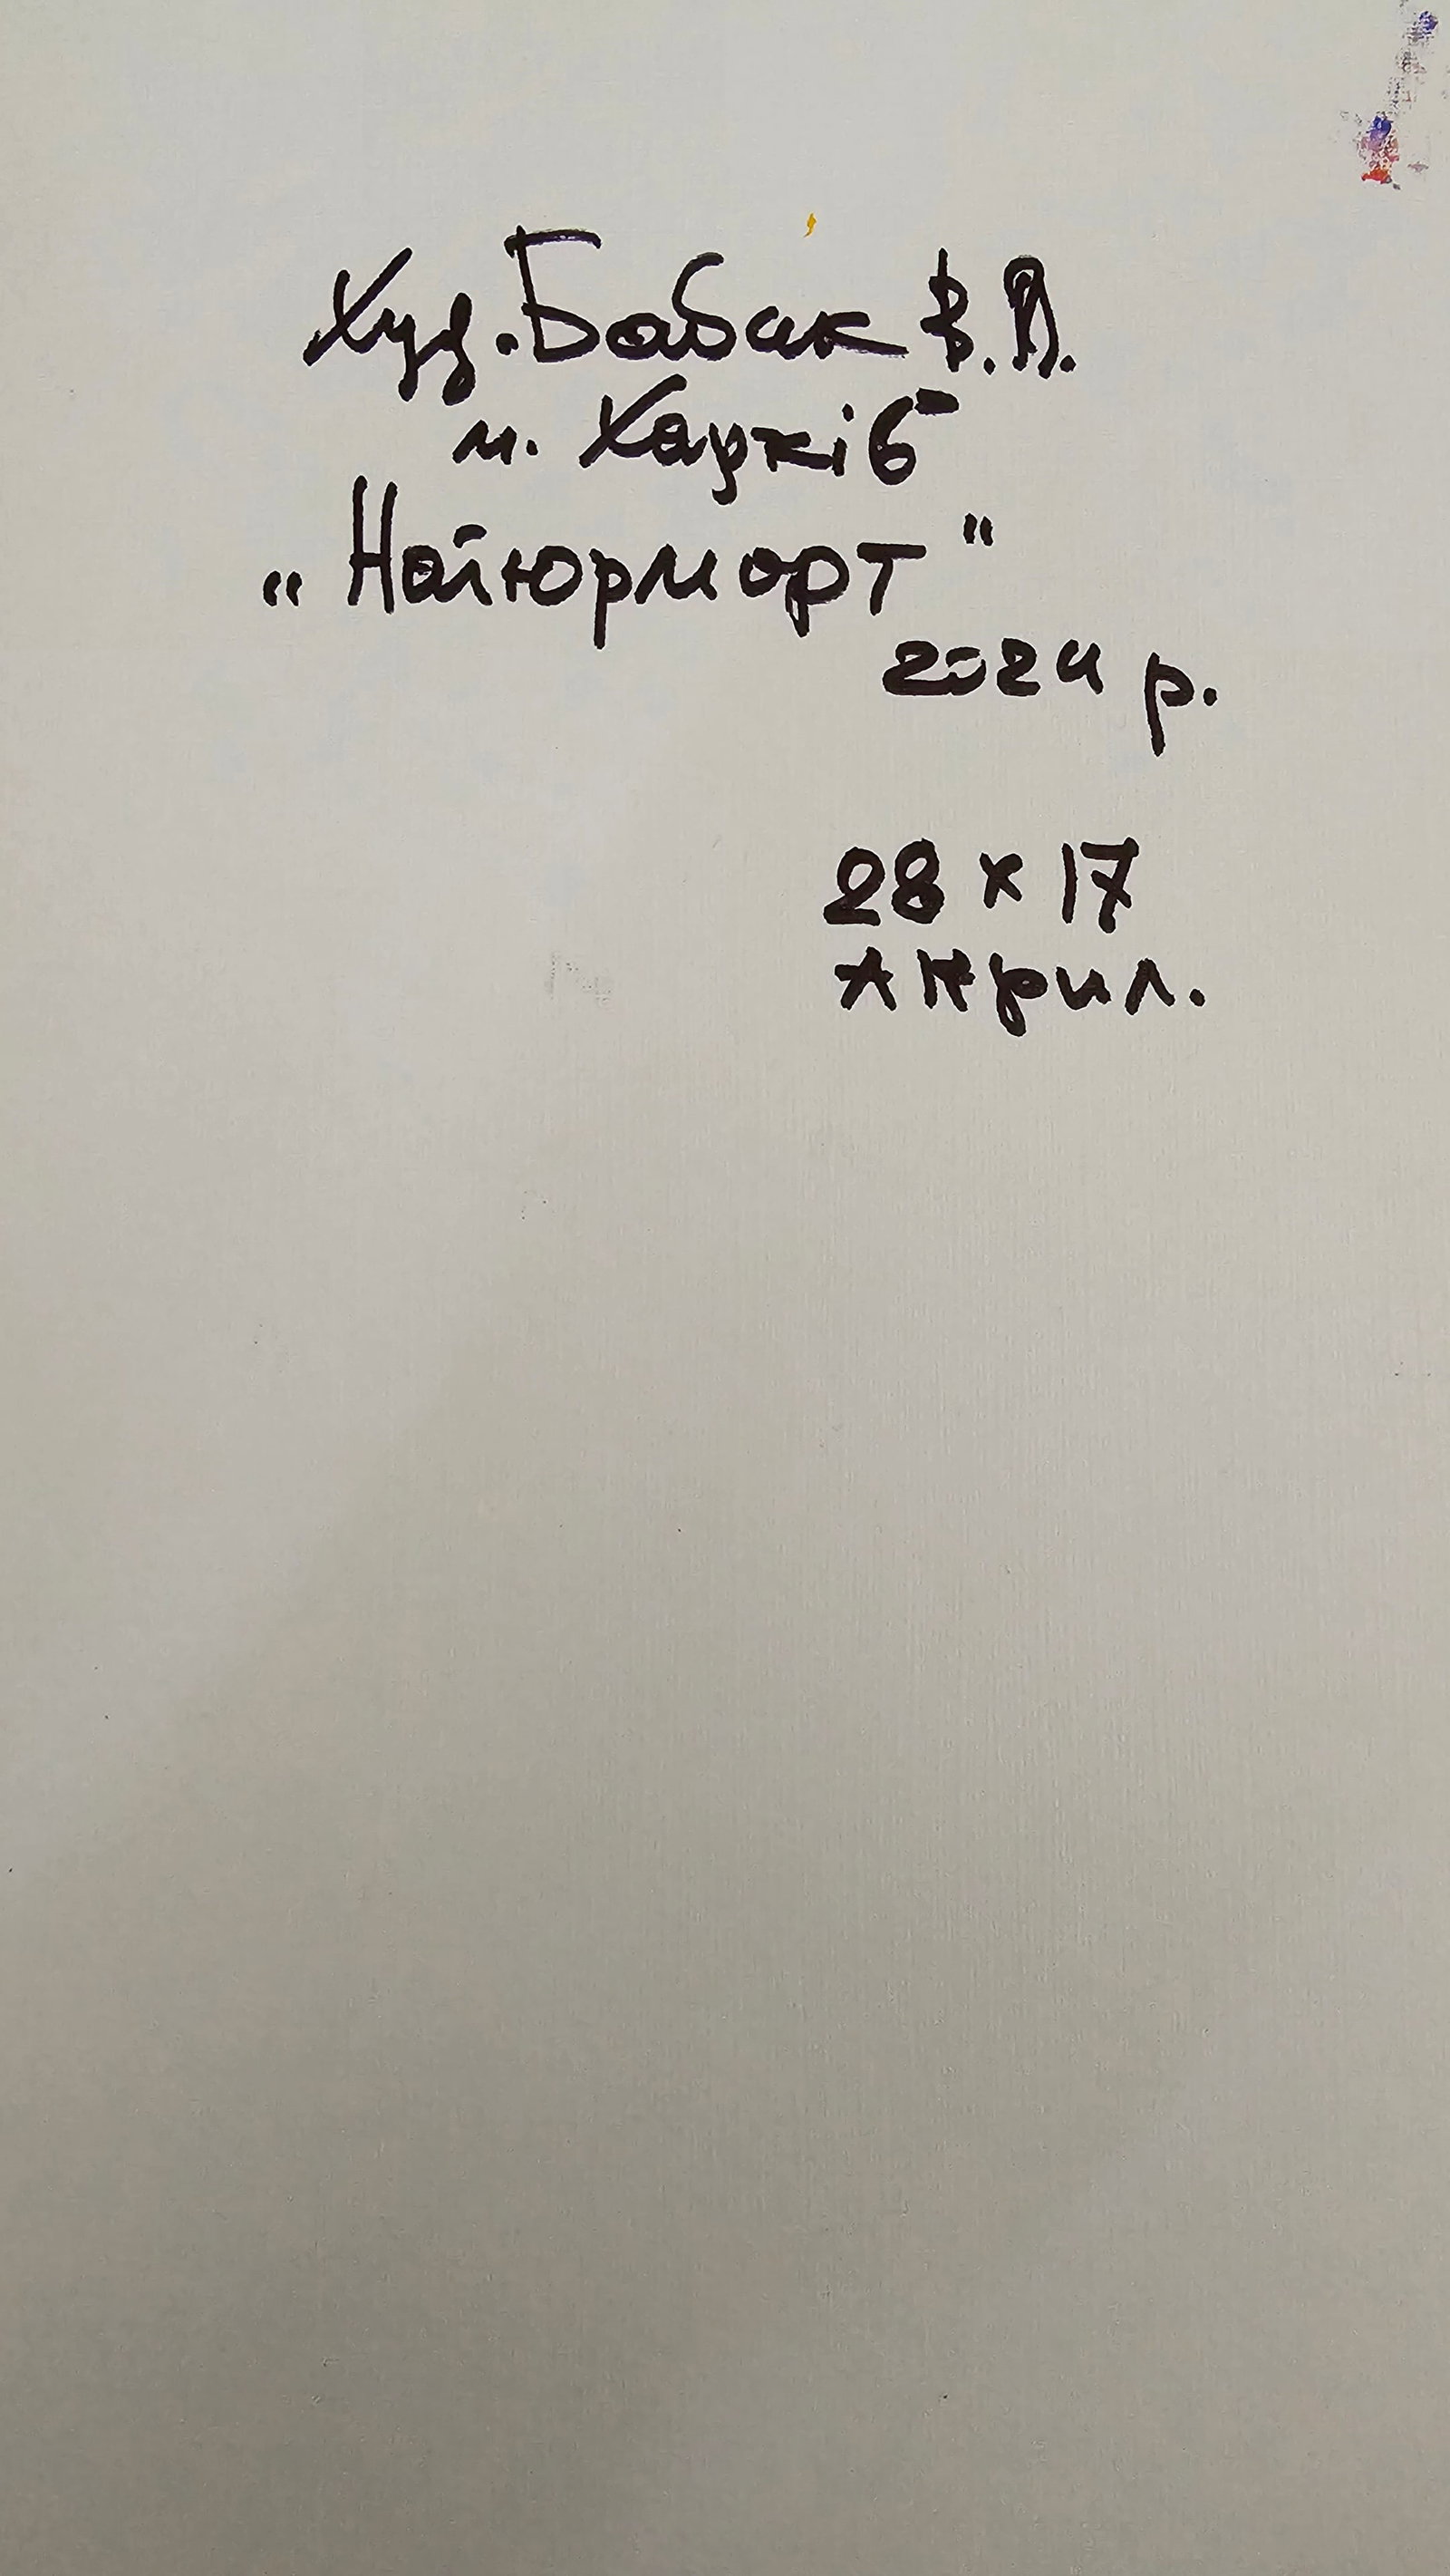 Худ. Бабак В.П.
м. Харків
„Натюрморт"
2024 р.
28 x 17
Акрил.